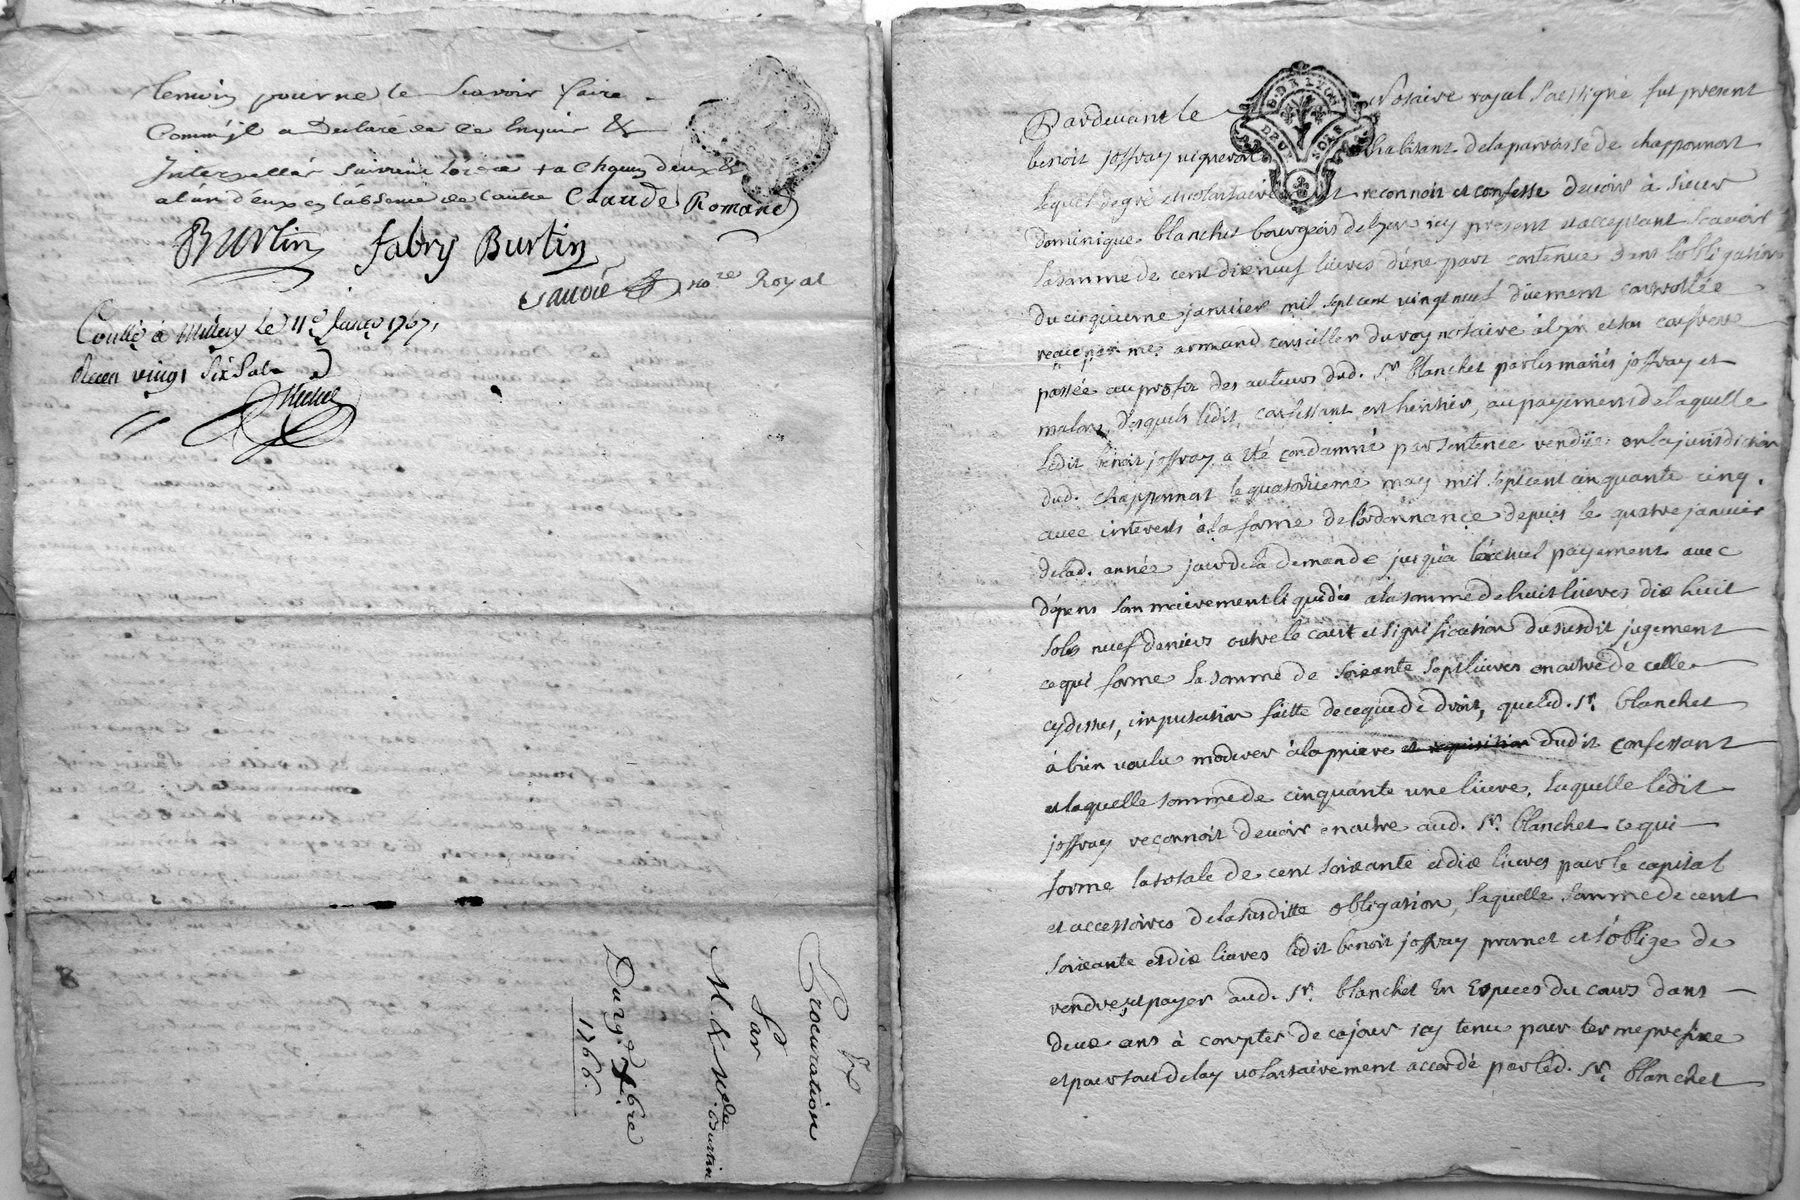 temoin pour ne le scavoir faire
Comm'jl a declaré de ce Enquis &
Interpellés suivant
alun d'eux en l'absence de lautre Claude Romand
Burtin fabry Burtin
no.re Royal
Conllé à Millery le 11e 1767,
Recu vingt six sols
Procuration
Par
M. & Burtin
Du 9e Xbre
1766.
GD DE LYON
DEUX SOLS
Pardevant le Notaire royal Soussigné fut present
benoit joffray vigneron habitant de la paroisse de chapponost
lequel de gré et volontairement reconnoit et confesse devoir à sieur
dominique blanchet bourgeois de lyon icy present et acceptant scavoir
la somme de cent dix neuf livres d'une part contenue dans l'obligation
du cinquieme janvier mil sept cent vingt neuf düement controllée
recüe par me. armand conseiller du roy notaire à lyon et son confrere
passée au profit des auteurs dud. sr. blanchet par les mariés joffray et
desquels ledit, confessant est heritier, au payement de laquelle
ledit benoit joffray a eté condamné par sentence rendüe en la jurisdiction
dud. chapponost le quatorzieme may mil sept cent cinquante cinq.
avec interests à la forme de l'ordonnance depuis le quatre janvier
de lad. année jour de la demande jusqu'a l'actuel payement avec
dépens sommairement liquidés à la somme de huit livres dix huit
sols neuf deniers outre le cout et signification du susdit jugement
ce qui forme la somme de soixante sept livres en outre de celle
cy dessus, imputation faitte de ce que de droit, que led. sr. blanchet
à bien voulu moderer à la priere et requisition dudit confessant
et laquelle somme de cinquante une livre, laquelle ledit
joffray reconnoit devoir en outre aud. sr. blanchet ce qui
forme la totale de cent soixante et dix livres pour le capital
et accessoires de la susditte obligation, laquelle somme de cent
soixante et dix livres ledit benoit joffray promet et s'oblige de
rendre, et payer aud. sr. blanchet En Especes du cours dans
deux ans à compter de ce jour icy tenu pour terme prefixe
et pour tout delay volontairement accordé par led. sr. blanchet